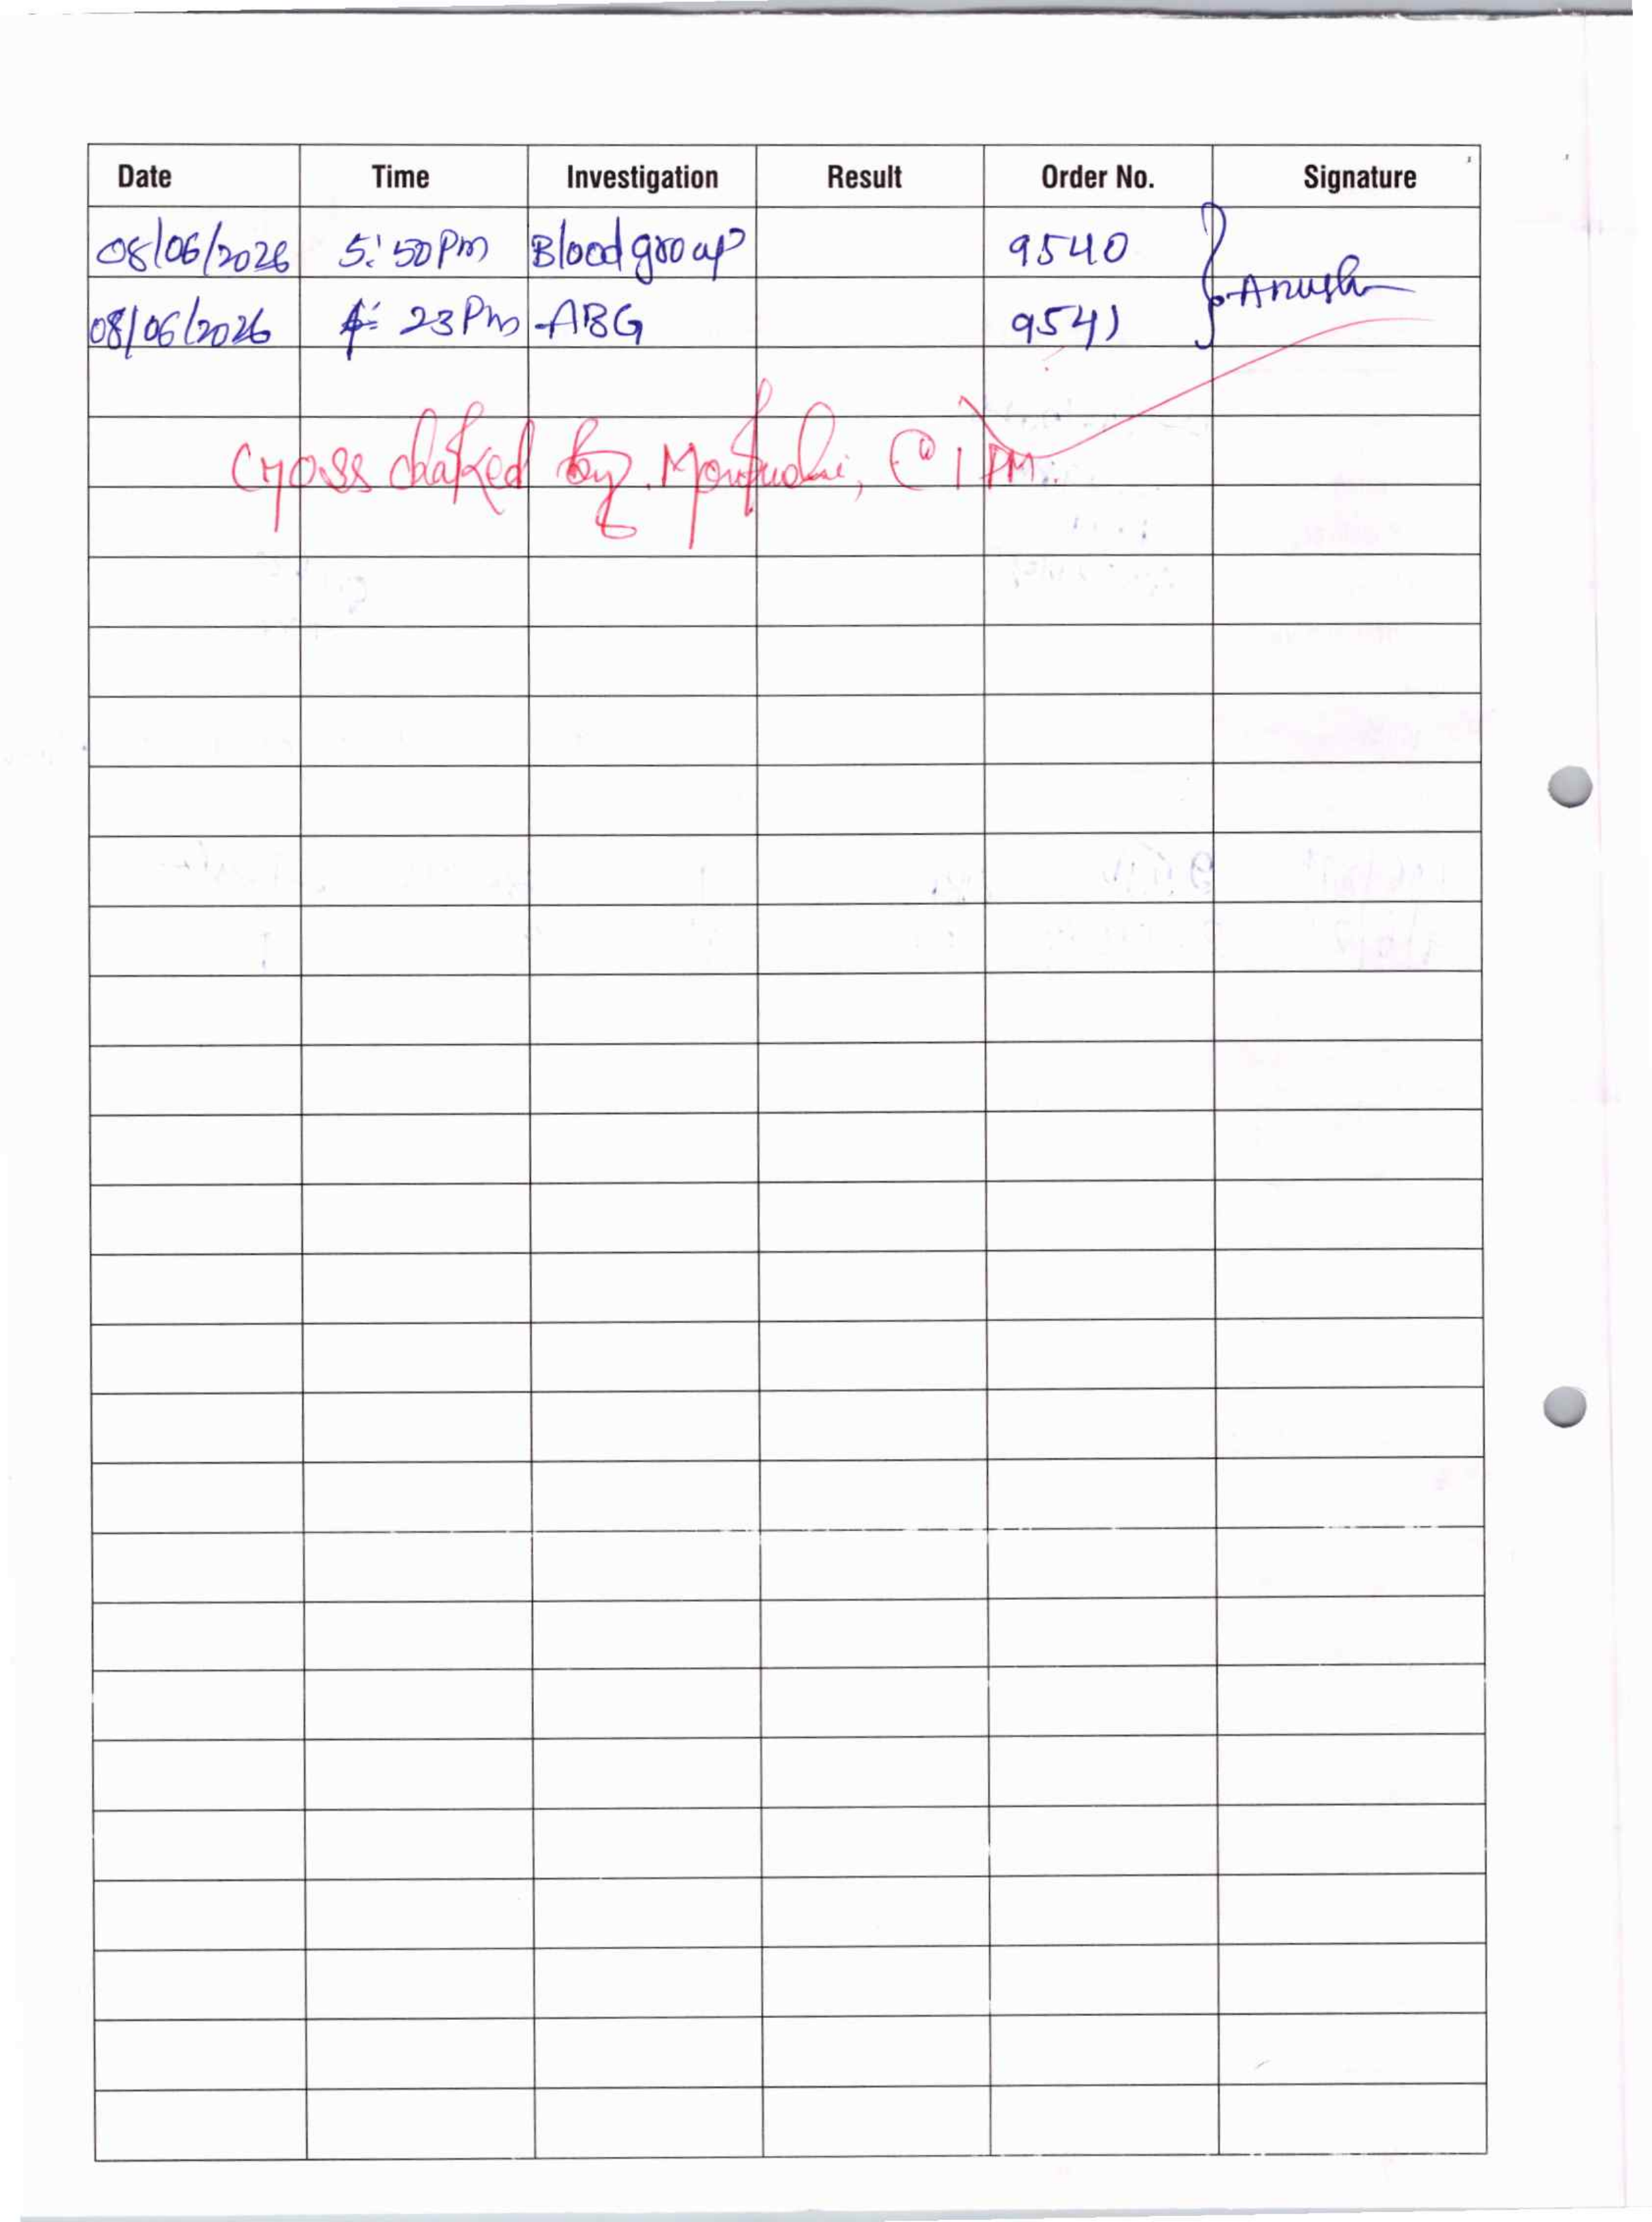 Date Time Investigation Result Order No. Signature
08/06/2026 5:50 Pm Blood group 9540
08/06/2026 : 23 Pm ABG 9541
Anusha
Cross chaked by @ 1 PM.